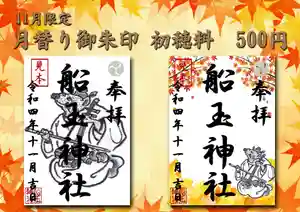 11月限定
月替り御朱印 初穂料 500円
見本
奉拝
船玉神社
令和四年十一月吉日
見本
奉拝
船玉神社
令和四年十一月吉日